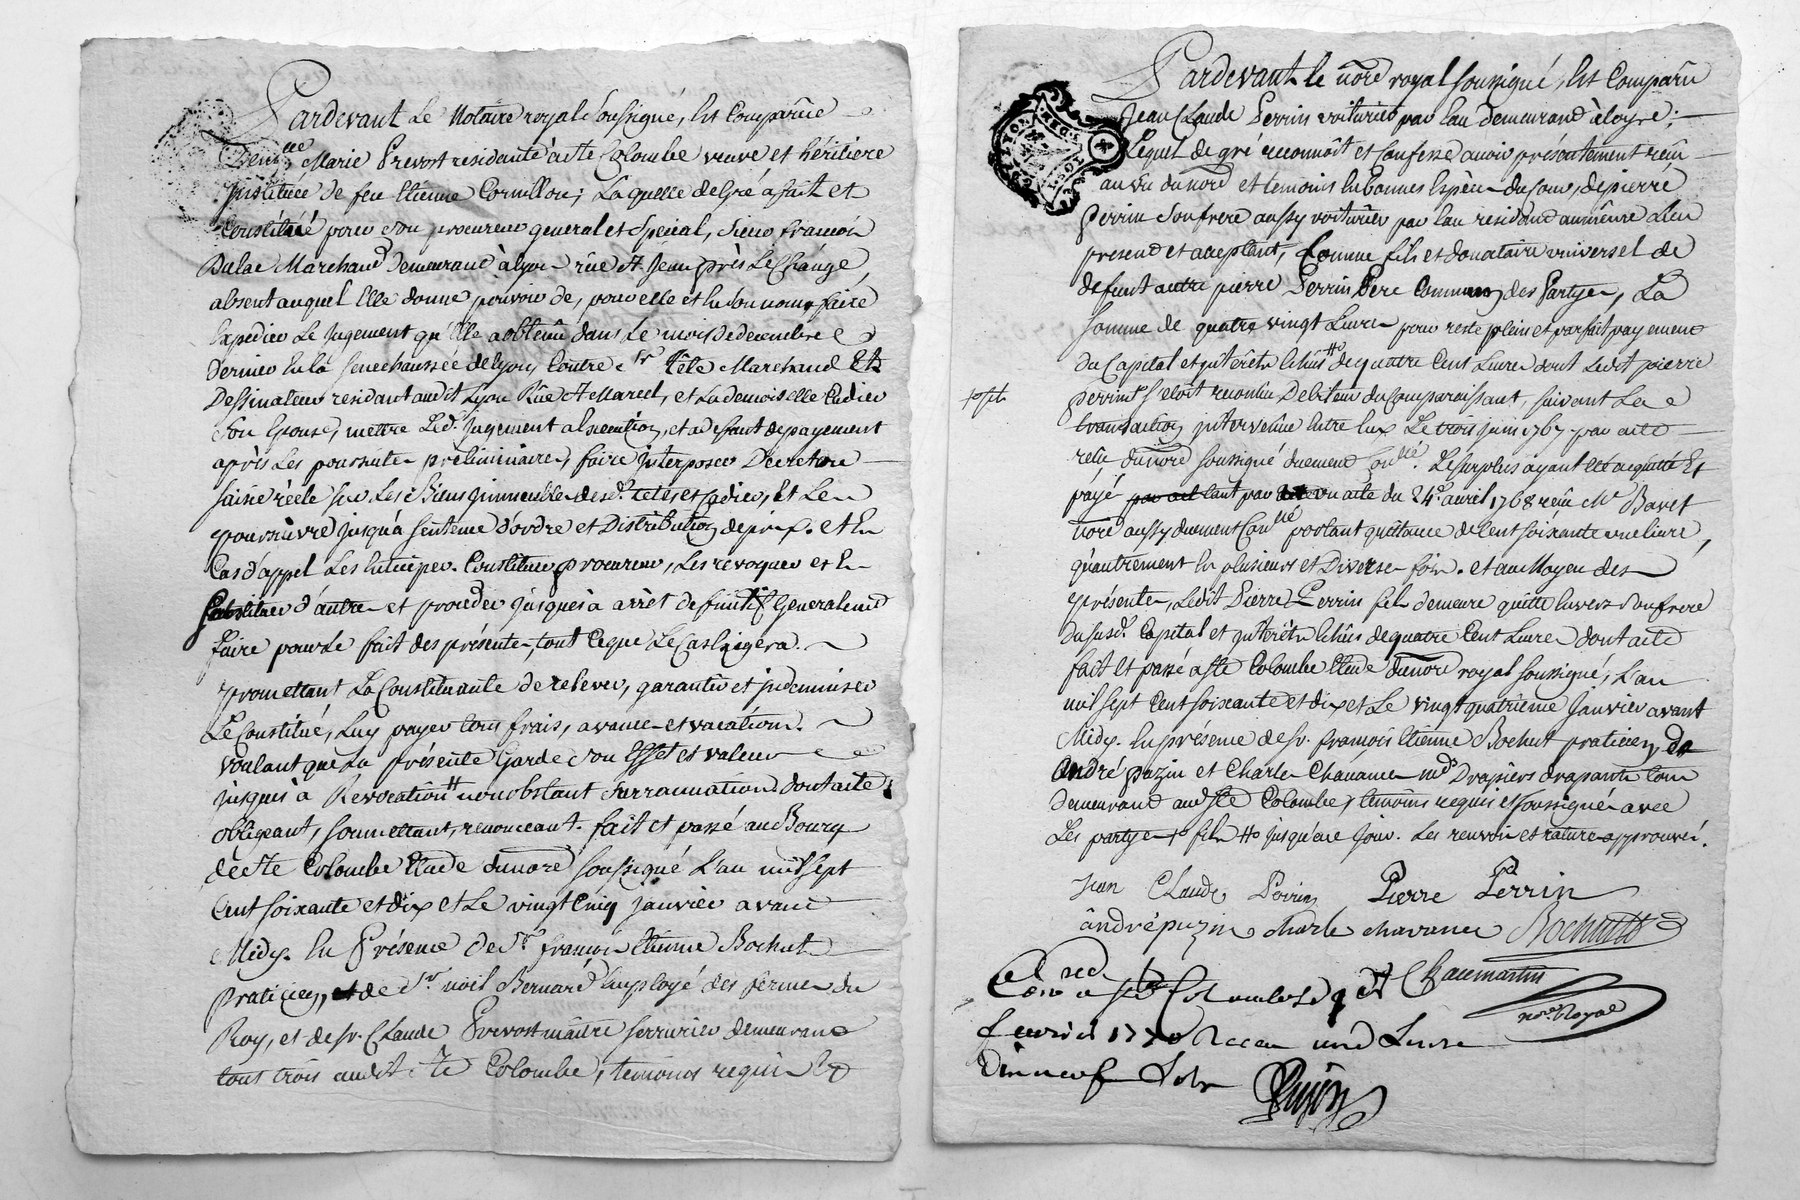 Pardevant Le Notaire royal soussigné, est Comparüe
Dem.lle Marie Prevost residante a ste Colombe veuve et hériliere
instituée de feu Etienne Cornillon; Laquelle de gré a fait et
Constitüé pour son procureur general et special, sieur françois
Dalac Marchand Demeurant à lyon rüe St Jean près Le Change,
absent auquel Elle donne pouvoir de, pour elle et en son nom, faire
Expedier Le Jugement qu'Elle a obtenû dans Le mois de decembre
dernier en la senechaussée de lyon, Contre sr. Tête Marchand Et
Dessinateur residant audit Lyon Rüe St Marcel, et La demoiselle Cadier
son Epouse, mettre Led. Jugement a Execution, et a defaut de payement
après Les poursuites préliminaires, faire Interposer Decret ou
saisie réele sur Les Biens immeubles desd. tete, et Cadier, et Les
poursuivre jusqu'a sentence d'ordre et Distribution de prix. et En
Cas d'appel Les Enticiper. Constituer procureur, Les revoquer et En
substituer d'autres et proceder jusques à arrêt deffinitif Generalement
faire pour Le fait des présentes, tout Ceque Le Cas Exigera.
promettant La Constituante de relever, garantir et indemniser
Le Constitué, Luy payer tous frais, avances et vacations.
voulant que La présente Garde son Effet et valeur
jusques à Révocation nonobstant surrannation dont acte
obligeant, soumettant, renonceant. fait et passé au Bourg
de Ste Colombe Etude du nore soussigné L'an mil sept
Cent soixante et dix et Le vingt Cinq janvier avant
Midy. En Présence de sr. françois Etienne Bochut
praticien, et de sr. noël Bernard Employé des fermes du
Roy, et de sr. Claude Prevost maître serrurier demeurant
tous trois audit Ste Colombe, temoins requis Et
Pardevant le nore royal soussigné, est Comparu
Jean Claude Perrin voiturier par Eau demeurant à loyre;
Lequel de gré reconnoît et Confesse avoir présentement reçu
au vu du nore et temoins En bonnes Espèces du Cour, de pierre
Perrin son frere aussy voiturier par Eau residant au même Lieu
present et acceptant, Comme fils et donataire universel de
defunt autre pierre Perrin Pere Commun des Partyes, La
somme de quatre vingt Livres pour reste plein et parfait payement
du Capital et intérêts Echus # de quatre Cent Livres dont Ledit pierre
Perrin s'etoit reconnu Debiteur du Comparoissant, suivant La
transaction intervenüe Entre Eux Le trois juin 1767 par acte
reçu du nore soussigné duement Con.llé. Le surplus ayant été acquitté Et
payé par acte du 24e. avril 1768 reçu Me Bavet
nore aussy duement Con.llé portant quittance de Cent soixante une livre,
qu'autrement En plusieurs et Diverses fois. et au Moyen des
présentes, Ledit Pierre Perrin fils demeure quitte Envers son frere
du susd. Capital et intérêts Echûs de quatre Cent Livres dont acte
fait et passé a Ste Colombe Etude du nore royal soussigné, L'an
mil sept Cent soixante et dix et Le vingt quatrieme Janvier avant
Midy. En présence de sr. françois Etienne Bochut praticien, de
André puzin et Charles Chavannes mds. Drapiers drapants tous
demeurant aud. Ste Colombe, temoins requis et soussignés avec
Les partyes + fils # jusqu'a ce jour. Les renvois et rature approuvés.
Jean Claude Perrin Pierre Perrin
andré puzin charle chavanes Bochutt
Chacemartin
nore. Royal
Con a ste Colombe
fevrier 1770 Recu une Livre
Dix neuf sols